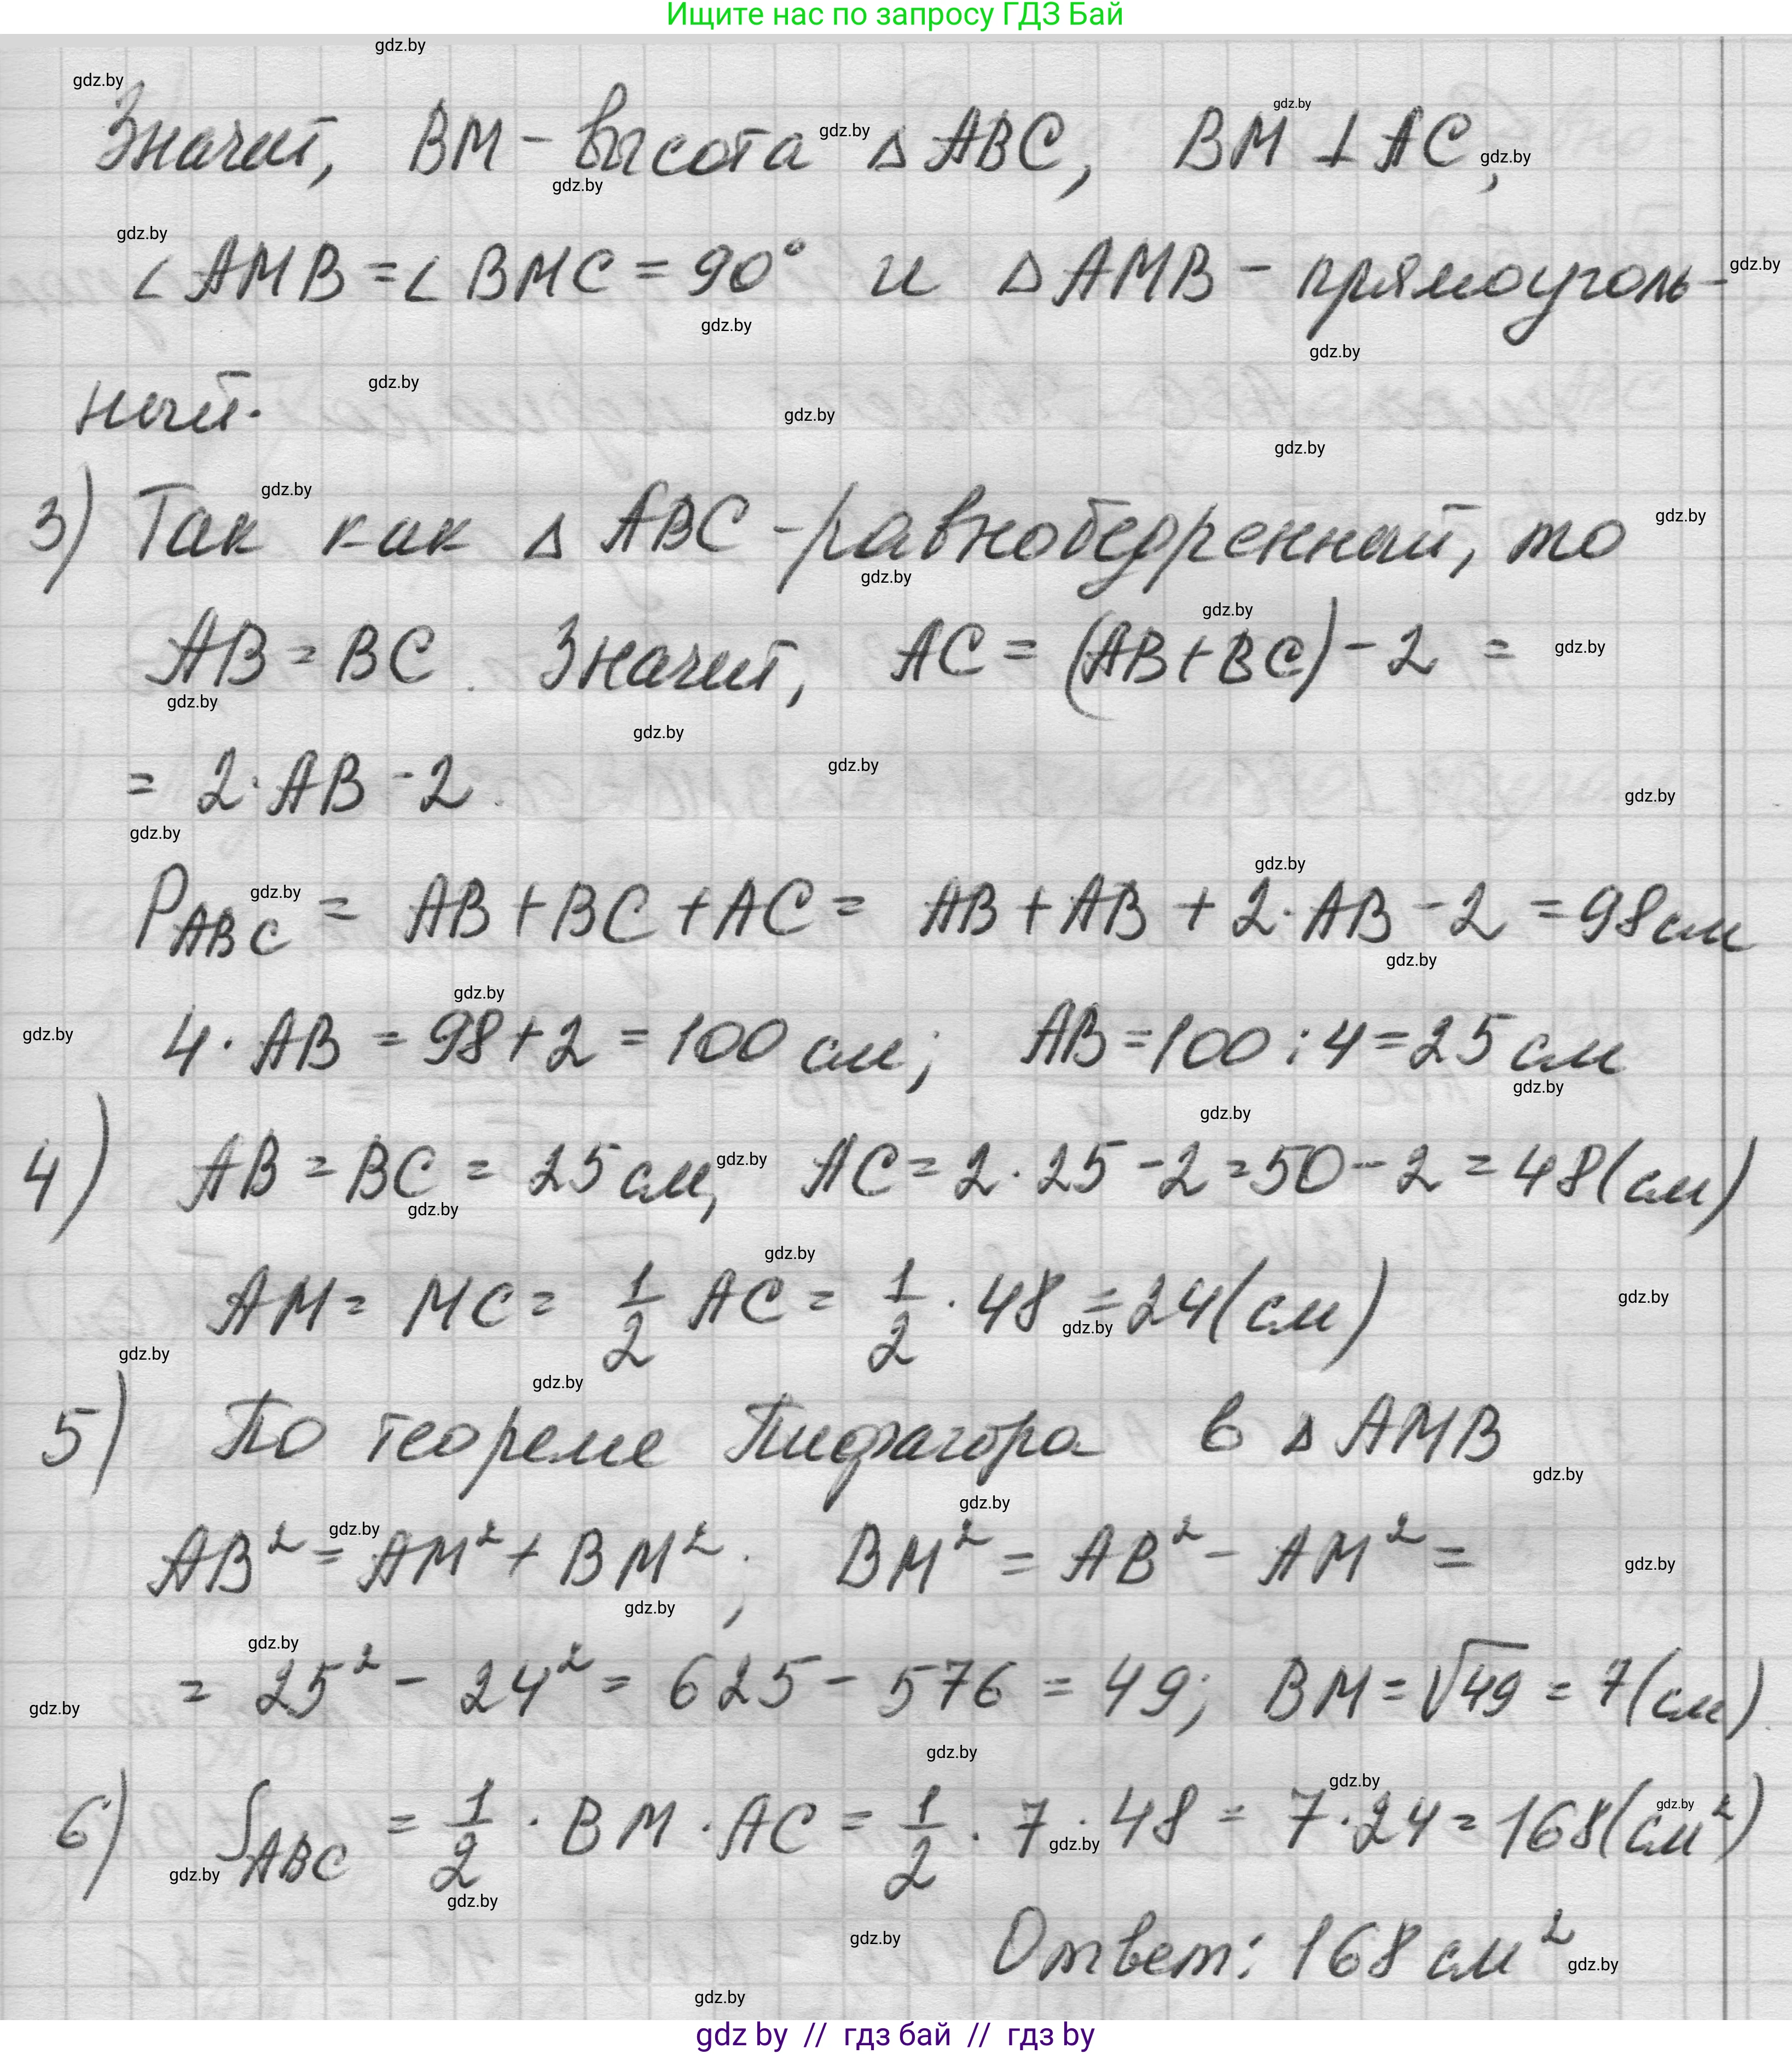 Ищите нас по запросу ГДЗ Бай
Значит, BM - высота △ ABC, BM ⊥ AC,
∠ AMB = ∠ BMC = 90° и △ AMB - прямоуголь-
ный.
3) Так как △ ABC - равнобедренный, то
AB = BC. Значит, AC = (AB + BC) - 2 =
= 2 · AB - 2.
P_ABC = AB + BC + AC = AB + AB + 2 · AB - 2 = 98 см
4 · AB = 98 + 2 = 100 см; AB = 100 : 4 = 25 см
4) AB = BC = 25 см, AC = 2 · 25 - 2 = 50 - 2 = 48 (см)
AM = MC = 1/2 AC = 1/2 · 48 = 24 (см)
5) По теореме Пифагора в △ AMB
AB² = AM² + BM²; BM² = AB² - AM² =
= 25² - 24² = 625 - 576 = 49; BM = √49 = 7 (см).
6) S_ABC = 1/2 · BM · AC = 1/2 · 7 · 48 = 7 · 24 = 168 (см²)
Ответ: 168 см²
gdz by // гдз бай // гдз by